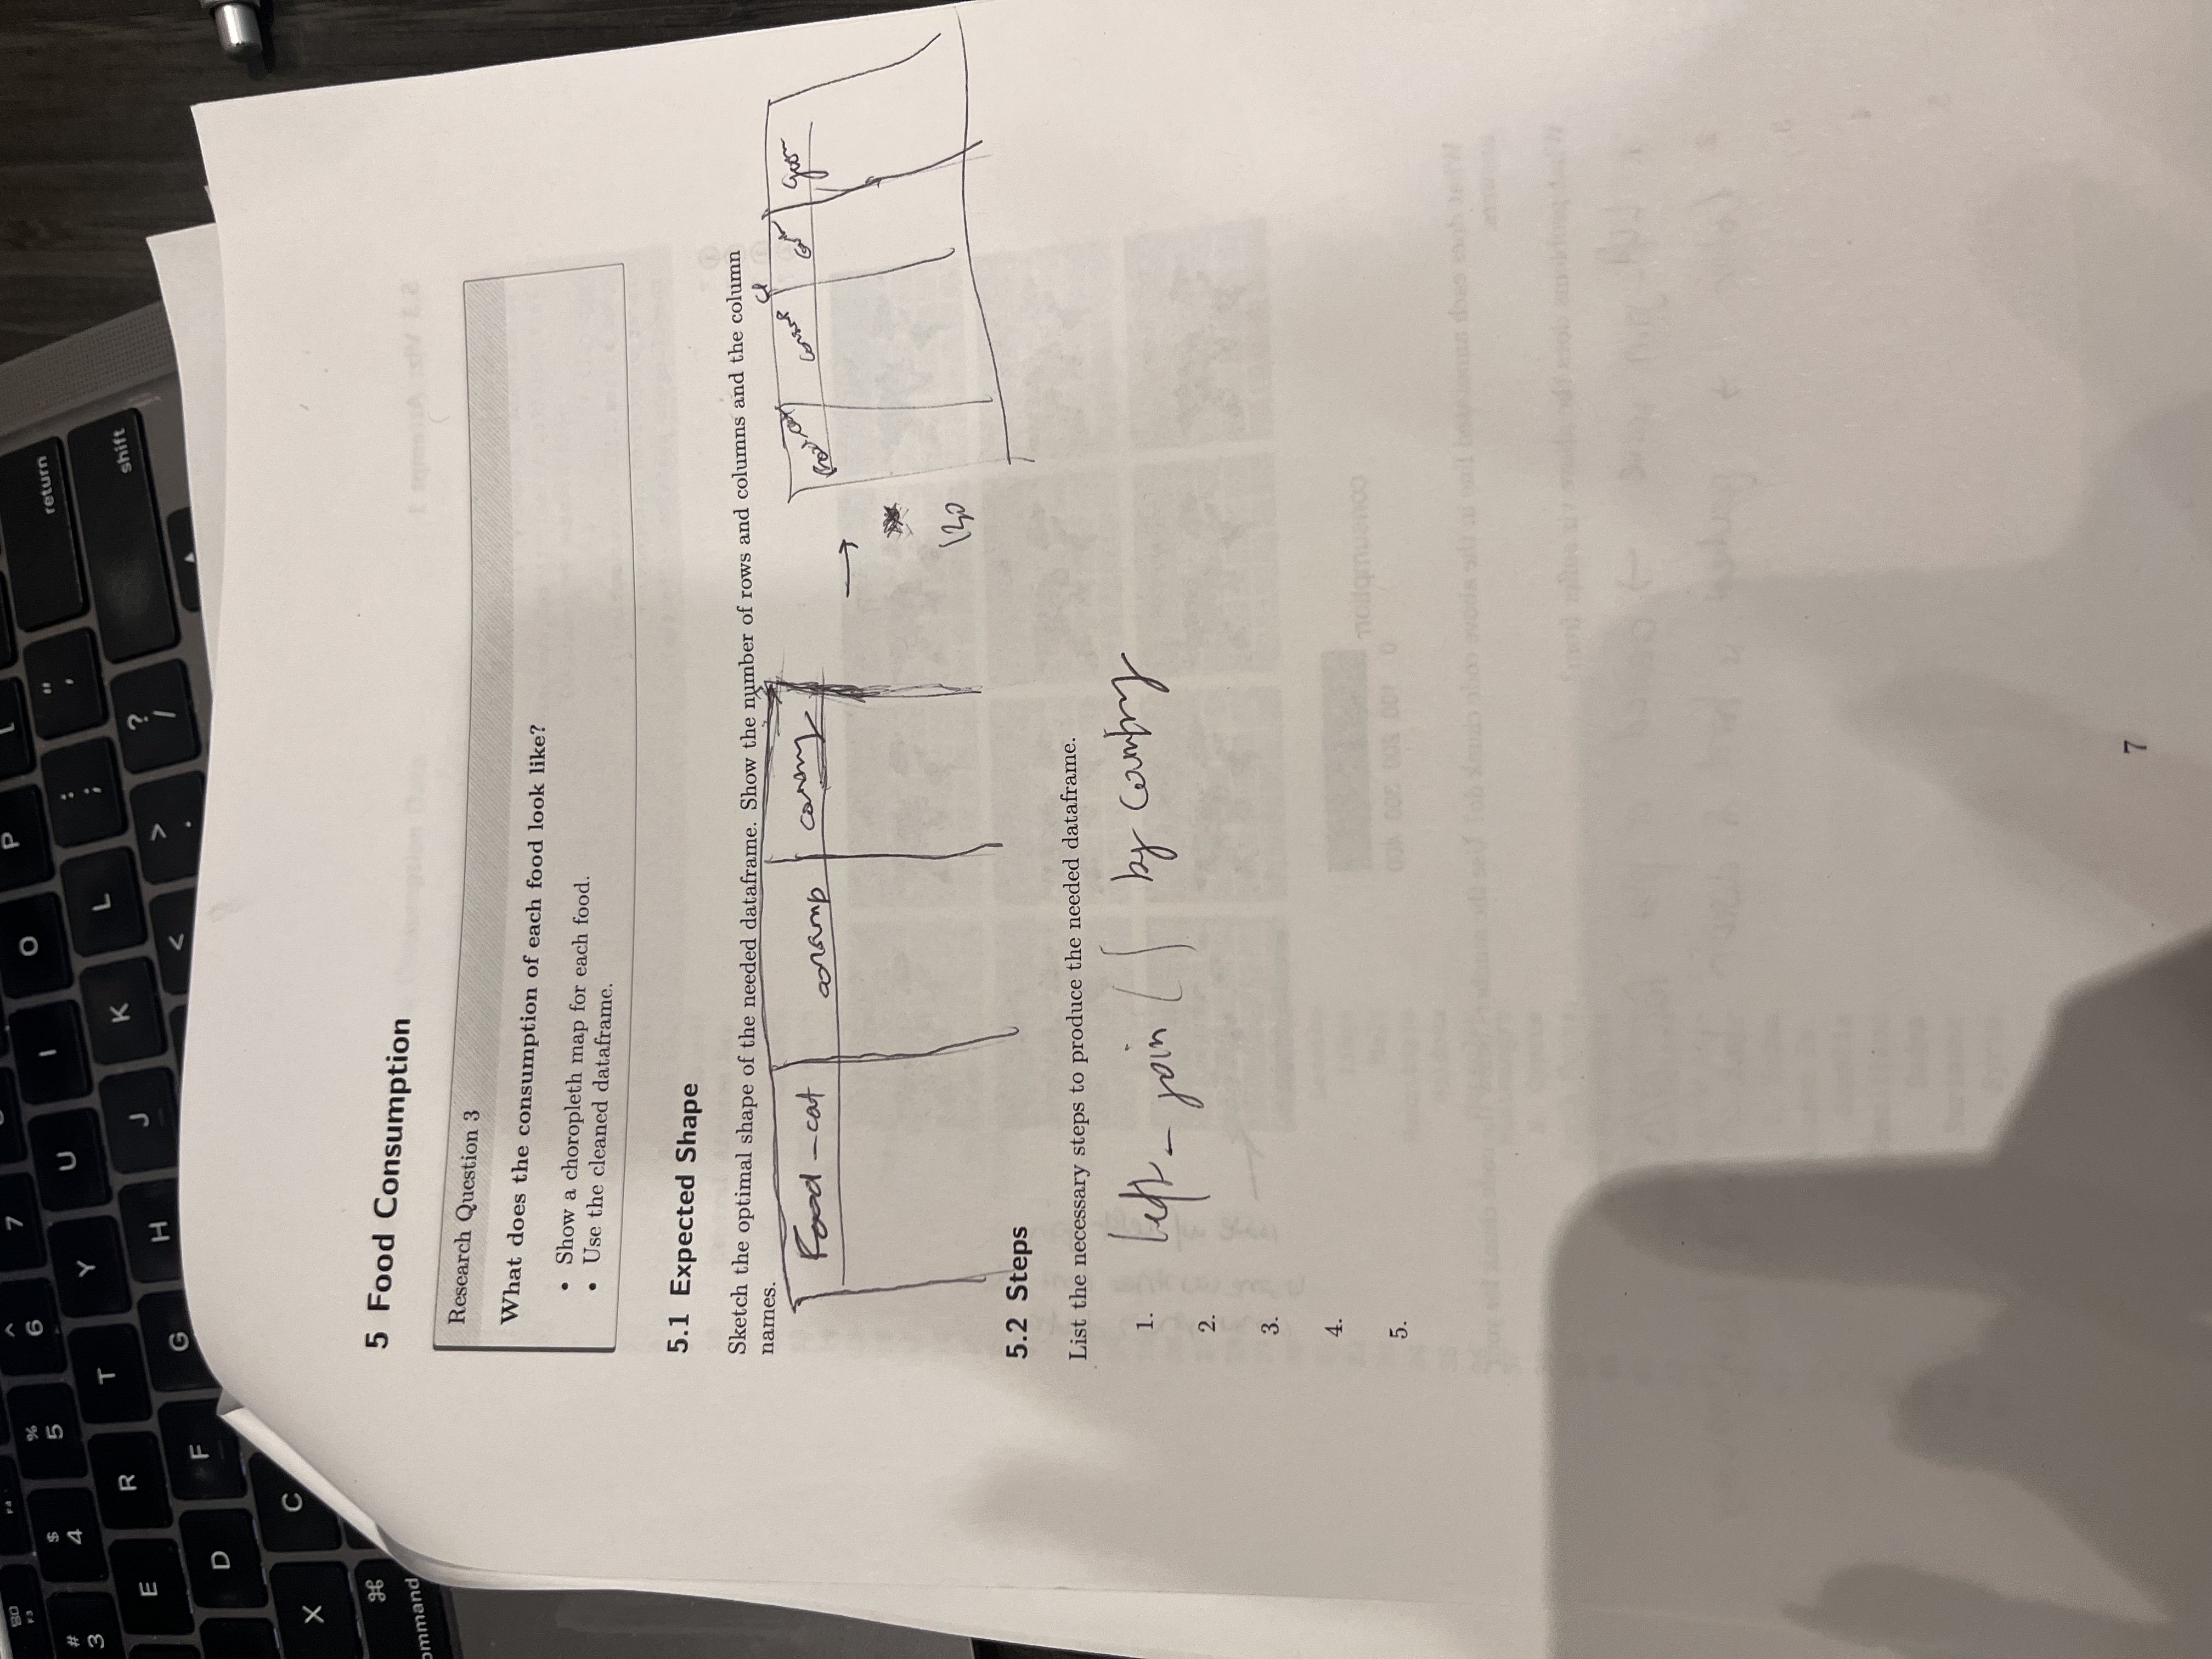 80
F3
F4
# 3
$ 4
% 5
^ 6
7
E R T Y U I O P
return
D F G H J K L : ; " '
shift
X C < > . ? /
⌘
command
5 Food Consumption
Research Question 3
What does the consumption of each food look like?
• Show a choropleth map for each food.
• Use the cleaned dataframe.
5.1 Expected Shape
Sketch the optimal shape of the needed dataframe. Show the number of rows and columns and the column
names.
Food_cat consump country
→ food_cat consump
130
5.2 Steps
List the necessary steps to produce the needed dataframe.
1. left_join () by country
2.
3.
4.
5.
7